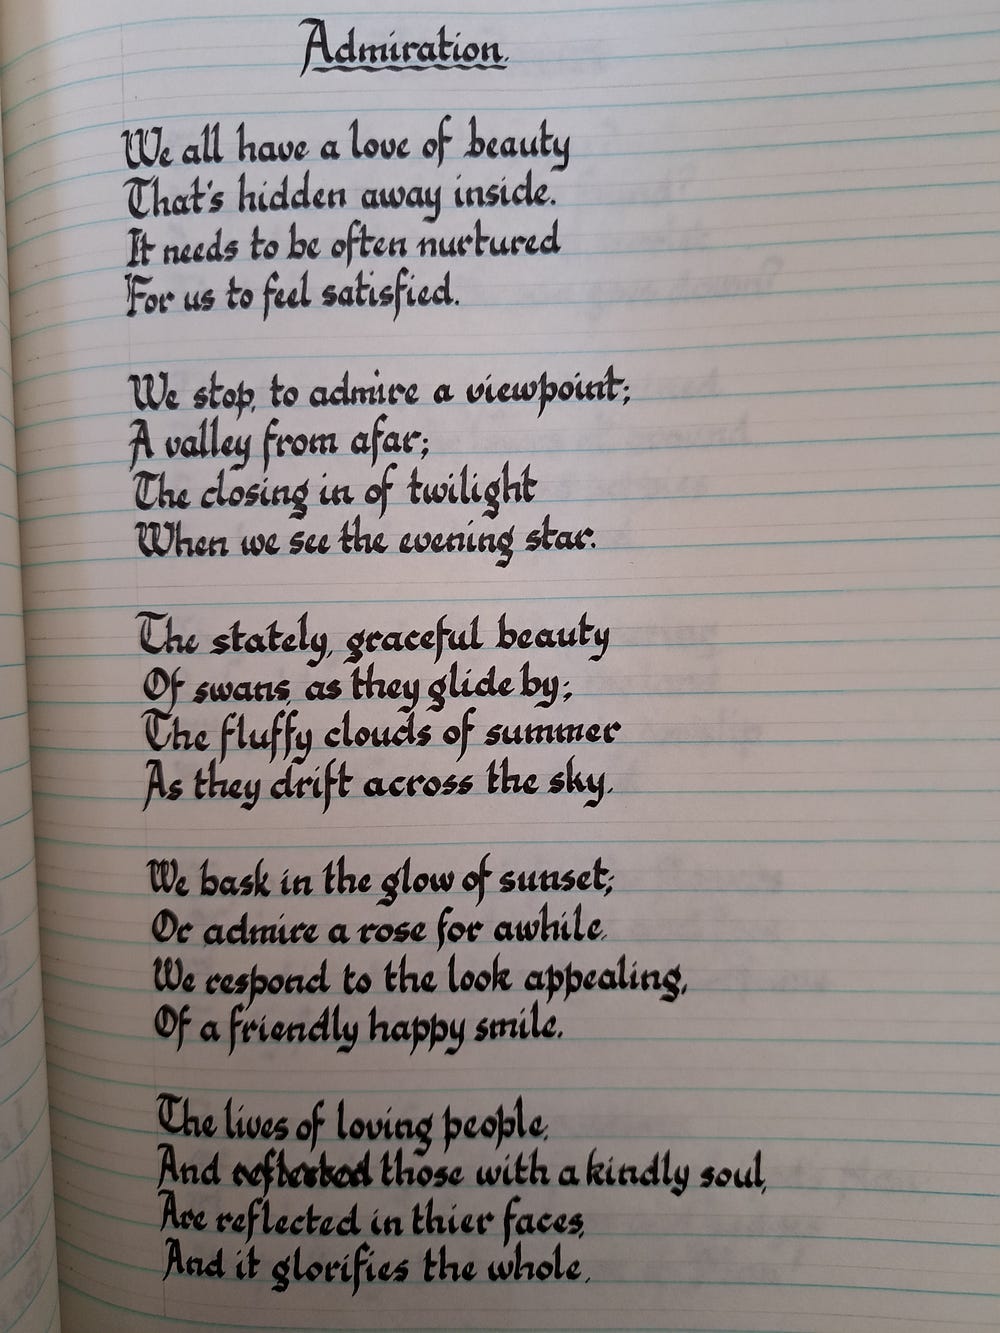 Admiration.
We all have a love of beauty
That's hidden away inside.
It needs to be often nurtured
For us to feel satisfied.
We stop, to admire a viewpoint;
A valley from afar;
The closing in of twilight
When we see the evening star.
The stately, graceful beauty
Of swans, as they glide by;
The fluffy clouds of summer
As they drift across the sky.
We bask in the glow of sunset;
Or admire a rose for awhile.
We respond to the look appealing,
Of a friendly happy smile.
The lives of loving people,
And reflected those with a kindly soul,
Are reflected in thier faces,
And it glorifies the whole.